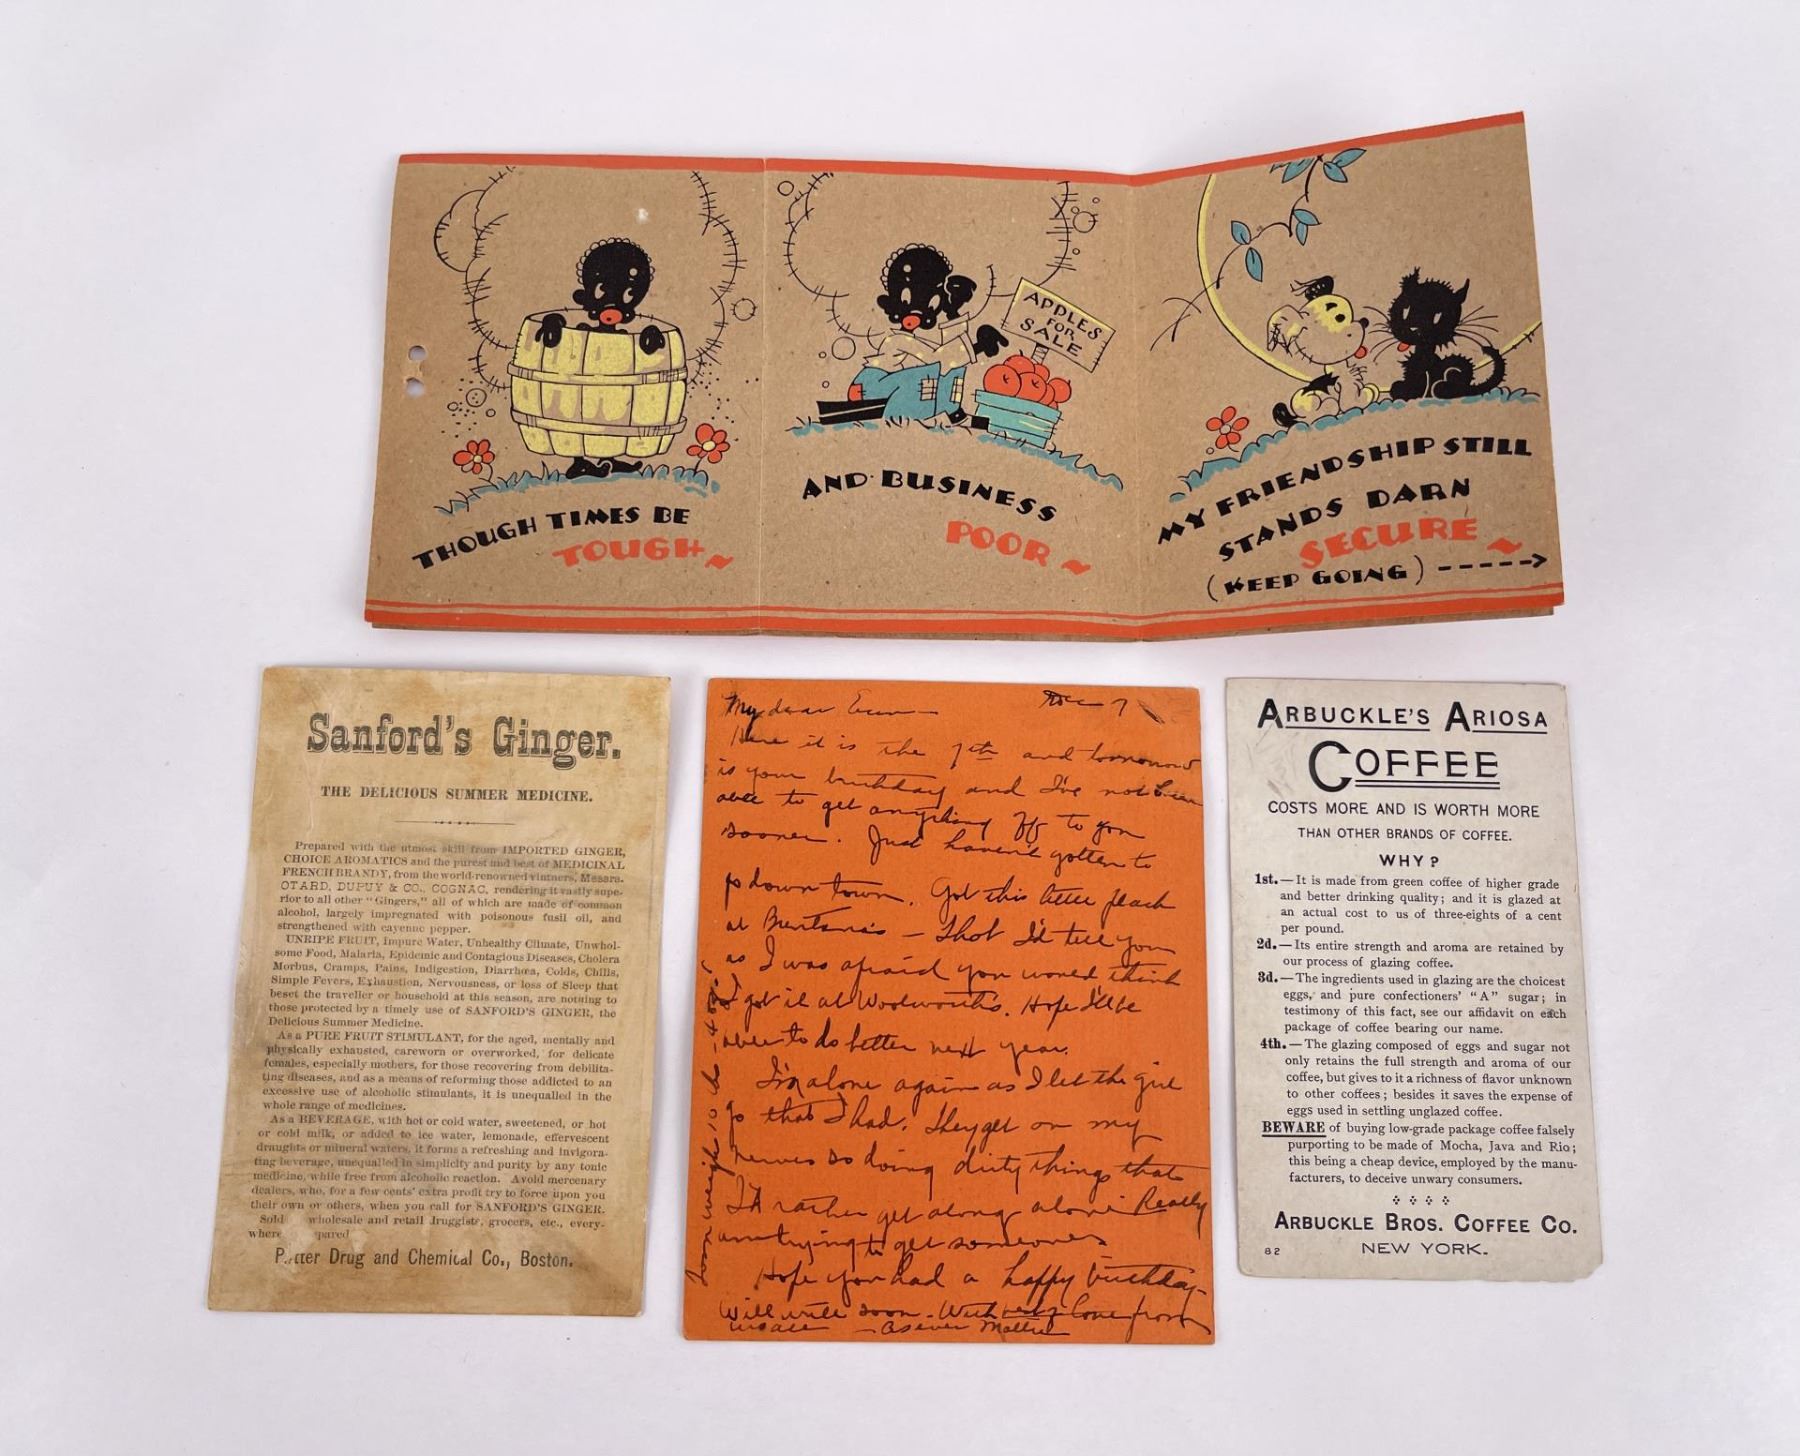 THOUGH TIMES BE
TOUGH~
APPLES
FOR
SALE
AND BUSINESS
POOR~
MY FRIENDSHIP STILL
STANDS DARN
SECURE~
(KEEP GOING) ----->
Sanford's Ginger.
THE DELICIOUS SUMMER MEDICINE.
Prepared with the utmost skill from IMPORTED GINGER,
CHOICE AROMATICS and the purest and best of MEDICINAL
FRENCH BRANDY, from the world-renowned vintners, Messrs.
OTARD, DUPUY & CO., COGNAC, rendering it vastly supe-
rior to all other "Gingers," all of which are made of common
alcohol, largely impregnated with poisonous fusil oil, and
strengthened with cayenne pepper.
UNRIPE FRUIT, Impure Water, Unhealthy Climate, Unwhol-
some Food, Malaria, Epidemic and Contagious Diseases, Cholera
Morbus, Cramps, Pains, Indigestion, Diarrhœa, Colds, Chills,
Simple Fevers, Exhaustion, Nervousness, or loss of Sleep that
beset the traveller or household at this season, are nothing to
those protected by a timely use of SANFORD'S GINGER, the
Delicious Summer Medicine.
As a PURE FRUIT STIMULANT, for the aged, mentally and
physically exhausted, careworn or overworked, for delicate
females, especially mothers, for those recovering from debilita-
ting diseases, and as a means of reforming those addicted to an
excessive use of alcoholic stimulants, it is unequalled in the
whole range of medicines.
As a BEVERAGE, with hot or cold water, sweetened, or hot
or cold milk, or added to ice water, lemonade, effervescent
draughts or mineral waters, it forms a refreshing and invigora-
ting beverage, unequalled in simplicity and purity by any tonic
medicine, while free from alcoholic reaction. Avoid mercenary
dealers, who, for a few cents' extra profit try to force upon you
their own or others, when you call for SANFORD'S GINGER.
Sold wholesale and retail druggists, grocers, etc., every-
where
Potter Drug and Chemical Co., Boston.
My dear Dec 7
Here it is the 7th and tomorrow
is your birthday and I've not been
able to get anything off to you
sooner. Just haven't gotten to
go down town. Got this little
at Brentano's — Thot I'd tell you
as I was afraid you would think
I got it at Woolworths. Hope I'll be
able to do better next year.
I'm alone again as I let the girl
go that I had. They get on my
nerves so doing dirty things that
I'd rather get along alone. Really
am trying to get someone
Hope you had a happy birthday -
Will write soon. With love from
us all — As ever Mollie
weighs 10 lbs
ARBUCKLE'S ARIOSA
COFFEE
COSTS MORE AND IS WORTH MORE
THAN OTHER BRANDS OF COFFEE.
WHY?
1st.—It is made from green coffee of higher grade
and better drinking quality; and it is glazed at
an actual cost to us of three-eights of a cent
per pound.
2d.—Its entire strength and aroma are retained by
our process of glazing coffee.
3d.—The ingredients used in glazing are the choicest
eggs, and pure confectioners' "A" sugar; in
testimony of this fact, see our affidavit on each
package of coffee bearing our name.
4th.—The glazing composed of eggs and sugar not
only retains the full strength and aroma of our
coffee, but gives to it a richness of flavor unknown
to other coffees; besides it saves the expense of
eggs used in settling unglazed coffee.
BEWARE of buying low-grade package coffee falsely
purporting to be made of Mocha, Java and Rio;
this being a cheap device, employed by the manu-
facturers, to deceive unwary consumers.
ARBUCKLE BROS. COFFEE CO.
82 NEW YORK.